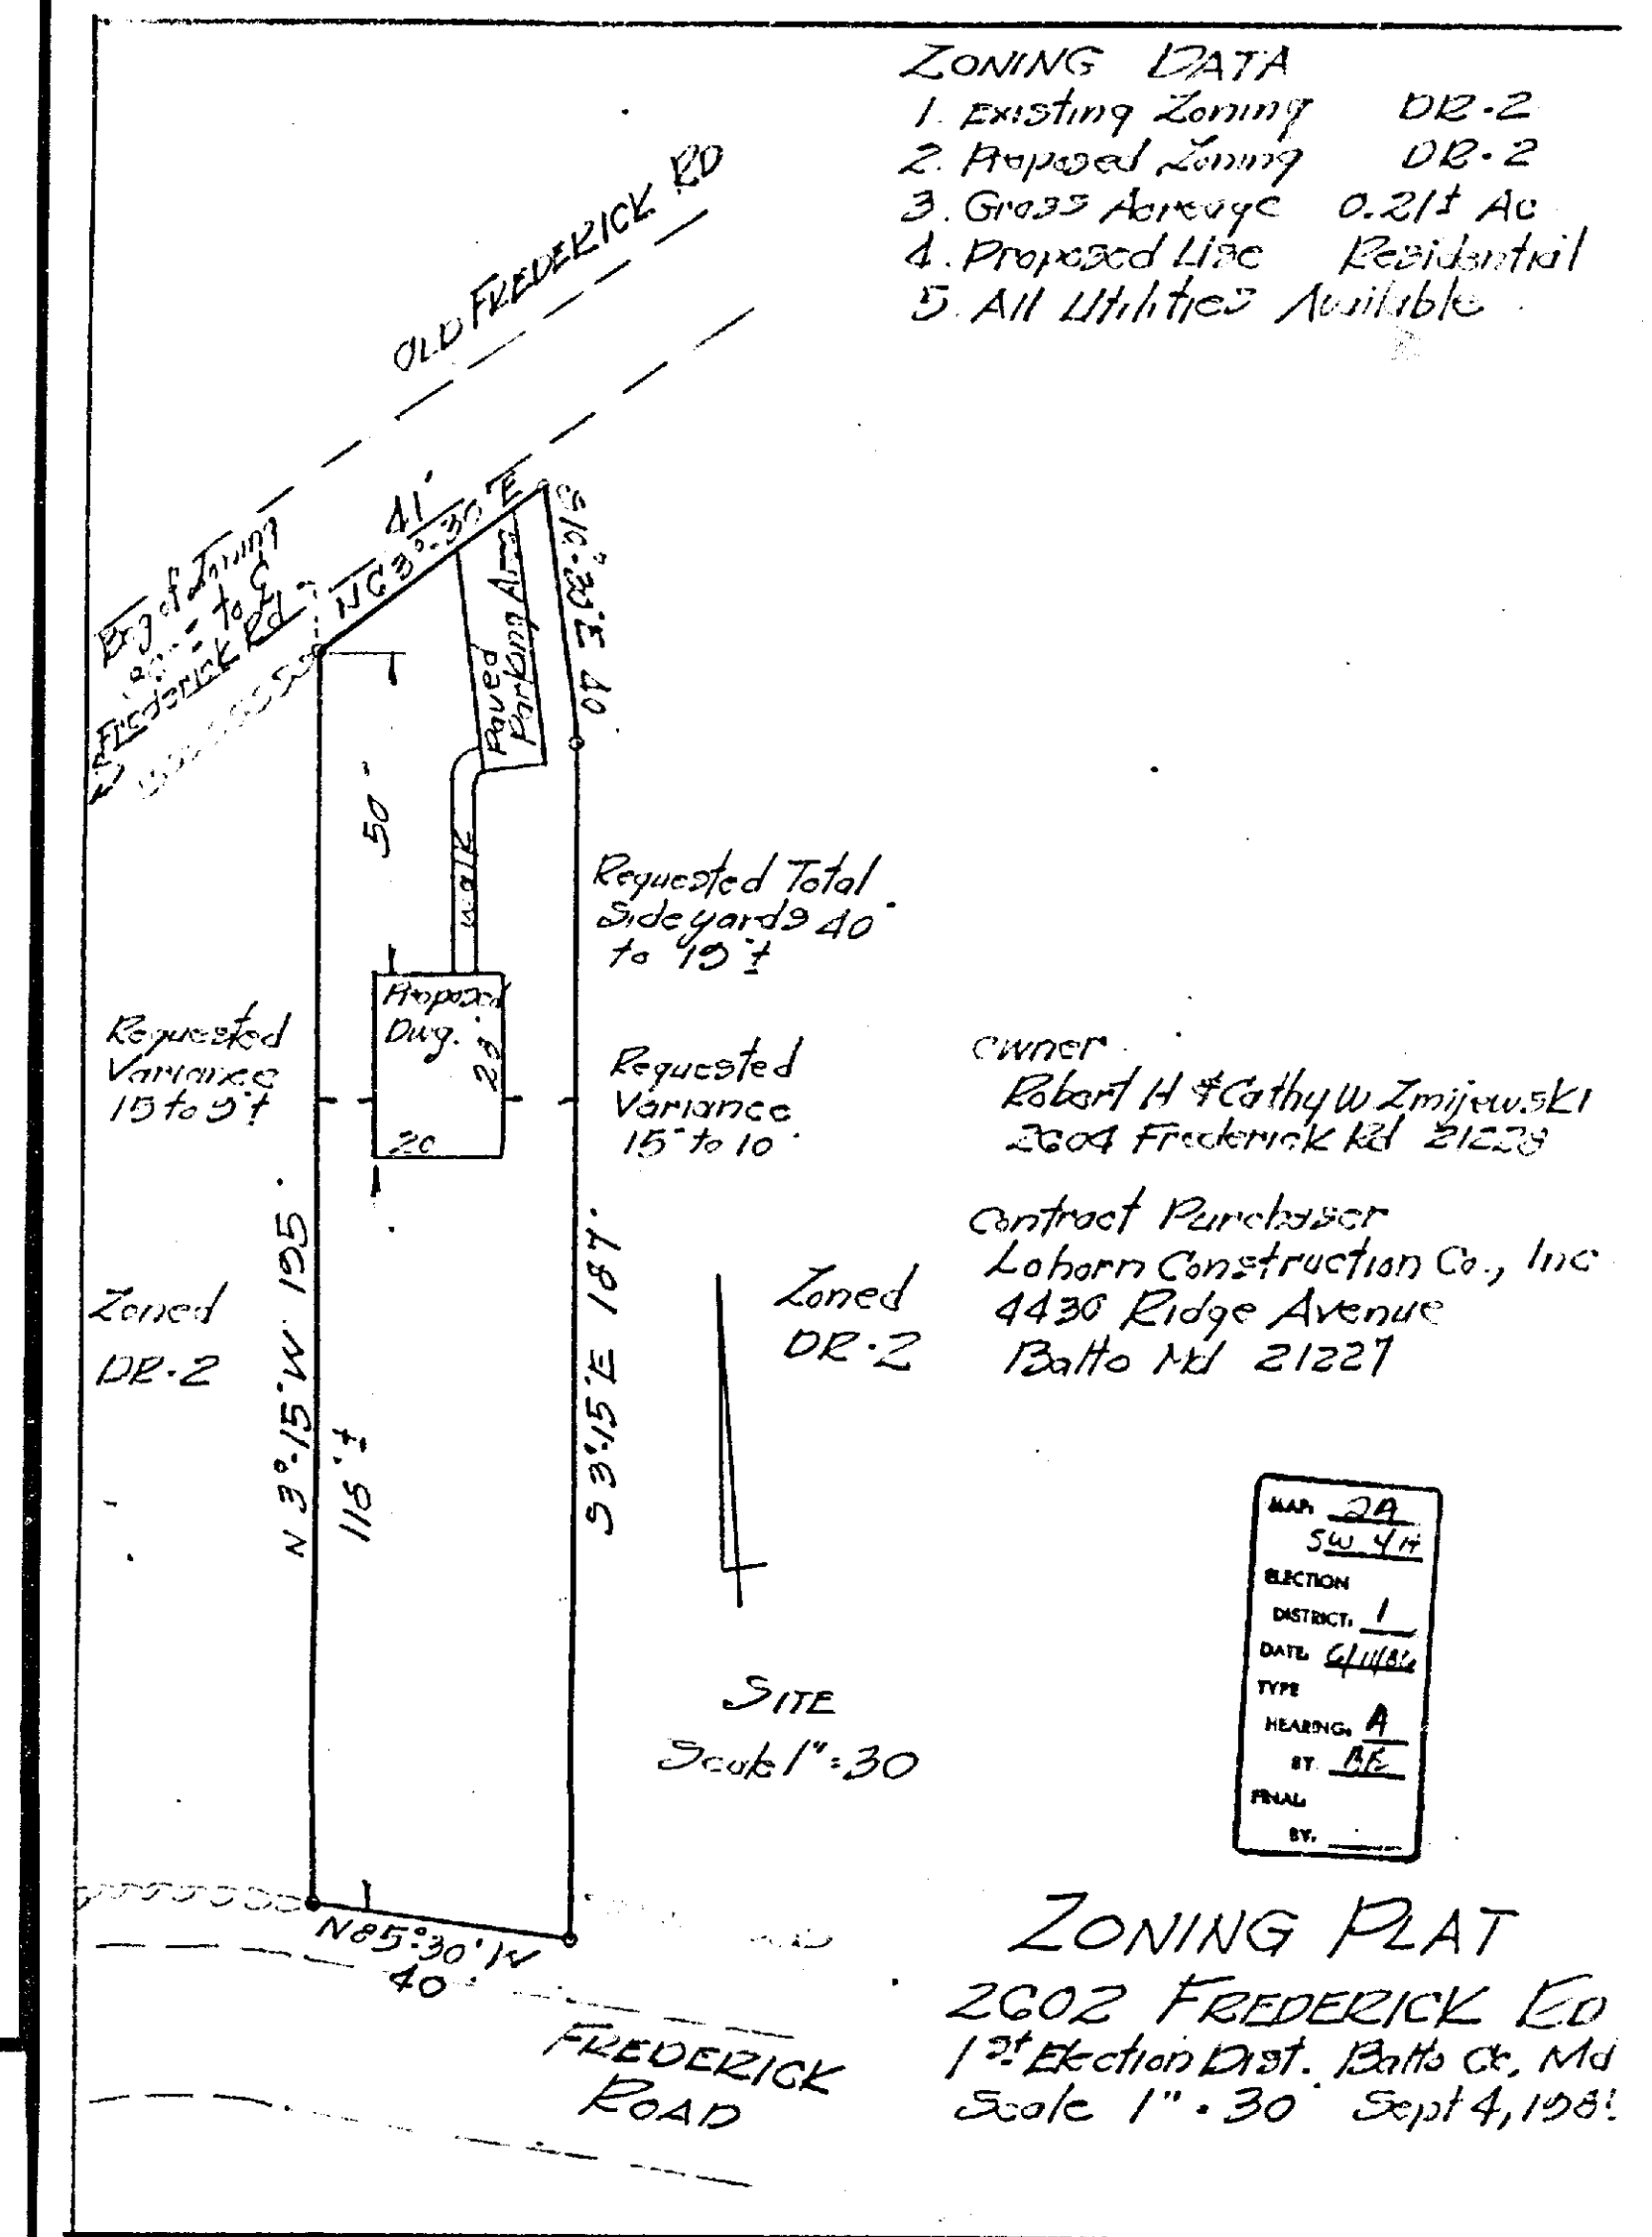 ZONING DATA
1. Existing Zoning DR-2
2. Proposed Zoning DR-2
3. Gross Acreage 0.21± Ac
4. Proposed Use Residential
5. All Utilities Available
OLD FREDERICK RD
41'
N63°-30'E
S10°-30'E 40
Beg of Zoning
to ℄
Frederick Rd
Paved
Parking Area
50'
Walk
Requested Total
Sideyards 40'
to 19'±
Proposed
Dwg.
28'
20
Requested
Variance
15 to 9'±
Requested
Variance
15' to 10'
Owner
Robert H & Cathy W Zmijewski
2604 Frederick Rd 21228
Contract Purchaser
Lohorn Construction Co., Inc
4430 Ridge Avenue
Balto Md 21227
Zoned
DR-2
N 3°-15'W 195'
118'±
S 3°-15'E 187'
Zoned
DR-2
MAP: 2A
SW 4H
ELECTION
DISTRICT: 1
DATE: 6/11/86
TYPE
HEARING: A
BY:
FINAL:
BY:
SITE
Scale 1"=30
N85°30'W
40'
FREDERICK
ROAD
ZONING PLAT
2602 FREDERICK RD
1st Election Dist. Balto Co, Md
Scale 1"=30' Sept 4,